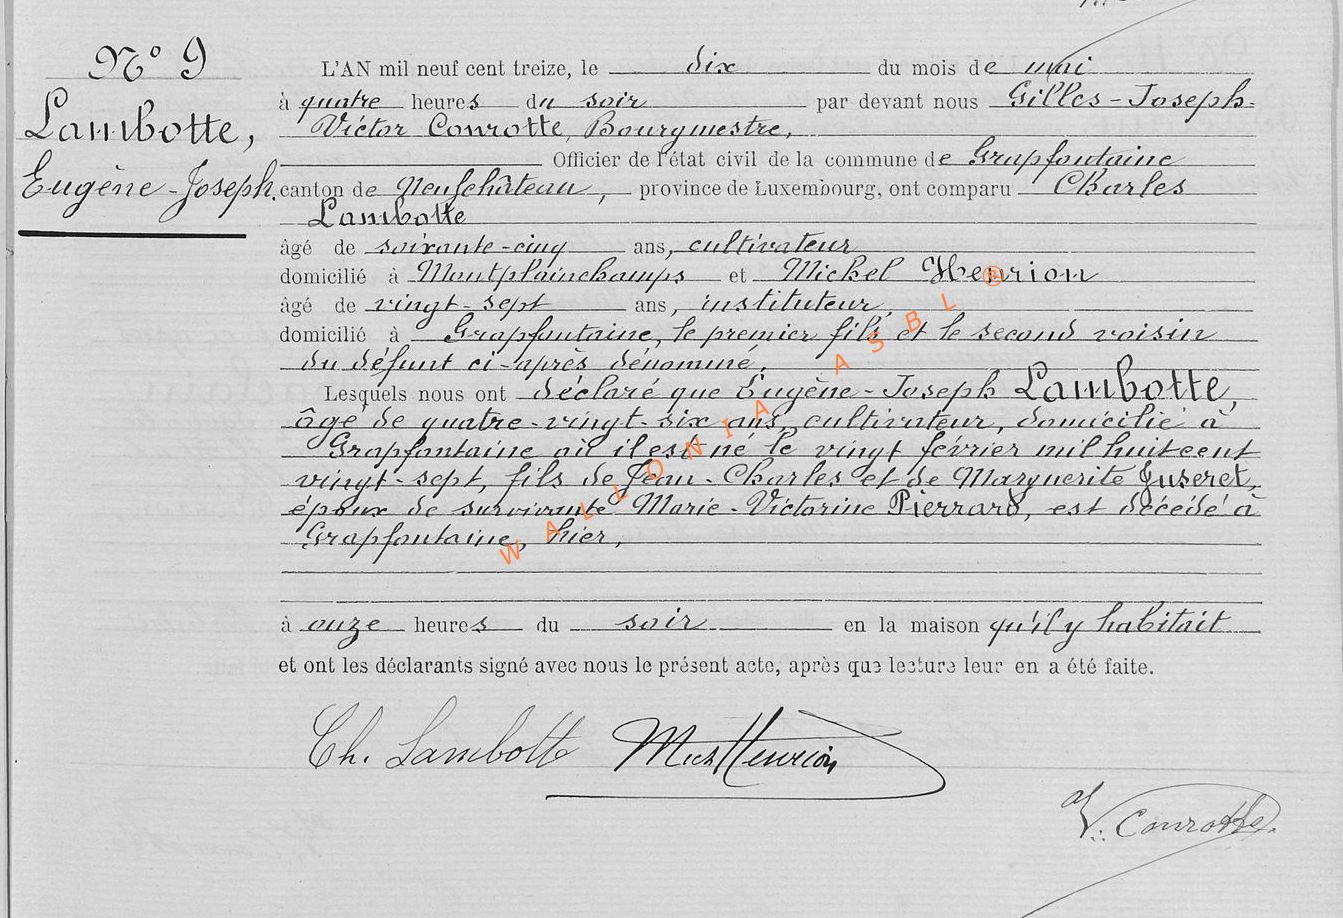 N° 9
Lambotte,
Eugène-Joseph.
L'AN mil neuf cent treize, le dix du mois de mai
à quatre heures du soir par devant nous Gilles-Joseph-
Victor Conrotte, Bourgmestre,
Officier de l'état civil de la commune de Grapfontaine
canton de Neufchâteau, province de Luxembourg, ont comparu Charles
Lambotte
âgé de soixante-cinq ans, cultivateur
domicilié à Montplainchamps et Michel Henrion
âgé de vingt-sept ans, instituteur,
domicilié à Grapfontaine, le premier fils et le second voisin
du défunt ci-après dénommé,
Lesquels nous ont déclaré que Eugène-Joseph Lambotte,
âgé de quatre-vingt-six ans, cultivateur, domicilié à
Grapfontaine où il est né le vingt février mil huit cent
vingt-sept, fils de Jean-Charles et de Marguerite Juseret,
époux de survivante Marie-Victorine Pierrard, est décédé à
Grapfontaine, hier,
à onze heures du soir en la maison qu'il y habitait
et ont les déclarants signé avec nous le présent acte, après que lecture leur en a été faite.
Ch. Lambotte Mich Henrion
V. Conrotte.
WALLONIA ASBL ®